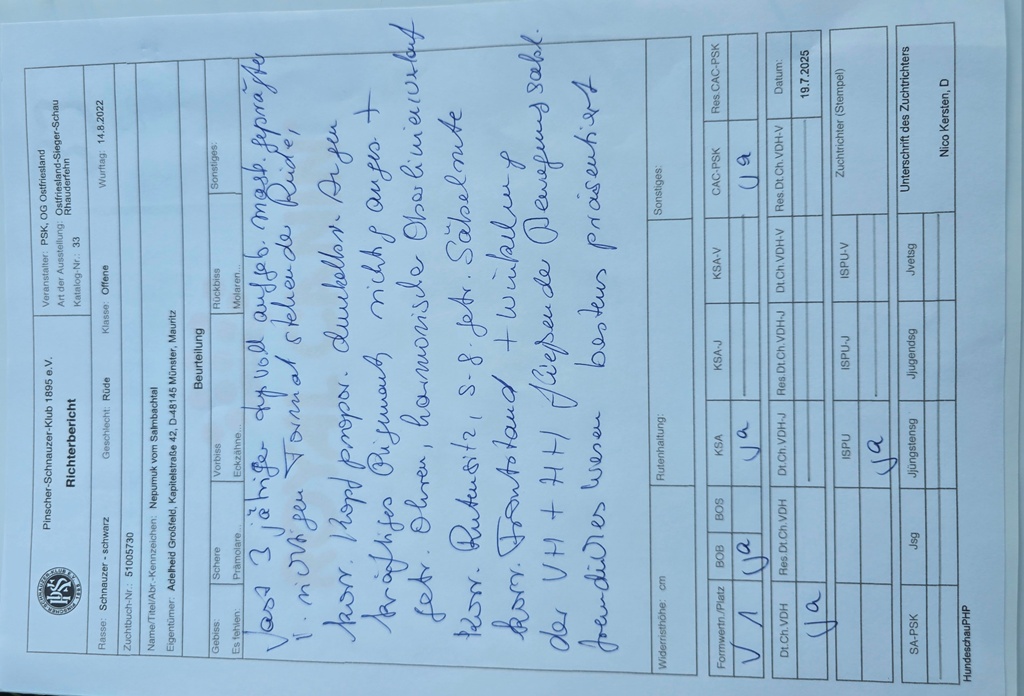 Pinscher-Schnauzer-Klub 1895 e.V.
Richterbericht
Veranstalter: PSK, OG Ostfriesland
Art der Ausstellung: Ostfriesland-Sieger-Schau
Rhauderfehn
Katalog-Nr.: 33
Rasse: Schnauzer - schwarz Geschlecht: Rüde Klasse: Offene Wurftag: 14.8.2022
Zuchtbuch-Nr.: 51005730
Name/Titel/Abr.-Kennzeichen: Nepumuk vom Salmbachtal
Eigentümer: Adelheid Großfeld, Kapitelstraße 42, D-48145 Münster, Mauritz
Beurteilung
Gebiss: Schere Vorbiss Rückbiss Sonstiges:
Es fehlen: Prämolare... Eckzähne... Molaren...
Fast 3 jährige typvoll aufgeb. mask. geprägter
i. richtigen Format stehende Rüde,
korr. Kopfpropor. dunkelbr. Augen
kräftiges Pigment, richtig anges. +
getr. Ohren, harmonische Oberlinienverlauf
korr. Rutensitz, s. g. getr. Säbelrute
korr. Frontstand + Winkelung
der VH + HH fließende Bewegungsabl.
freundliches Wesen bestens präsentiert
Widerristhöhe: cm Rutenhaltung: Sonstiges:
Formwertn./Platz BOB BOS KSA KSA-J KSA-V CAC-PSK Res.CAC-PSK
V 1 ja ja ja
Dt.Ch.VDH Res.Dt.Ch.VDH Dt.Ch.VDH-J Res.Dt.Ch.VDH-J Dt.Ch.VDH-V Res.Dt.Ch.VDH-V Datum:
ja 19.7.2025
ISPU ISPU-J ISPU-V Zuchtrichter (Stempel)
ja
SA-PSK Jsg Jjüngstensg Jjugendsg Jvetsg Unterschrift des Zuchtrichters
Nico Kersten, D
HundeschauPHP